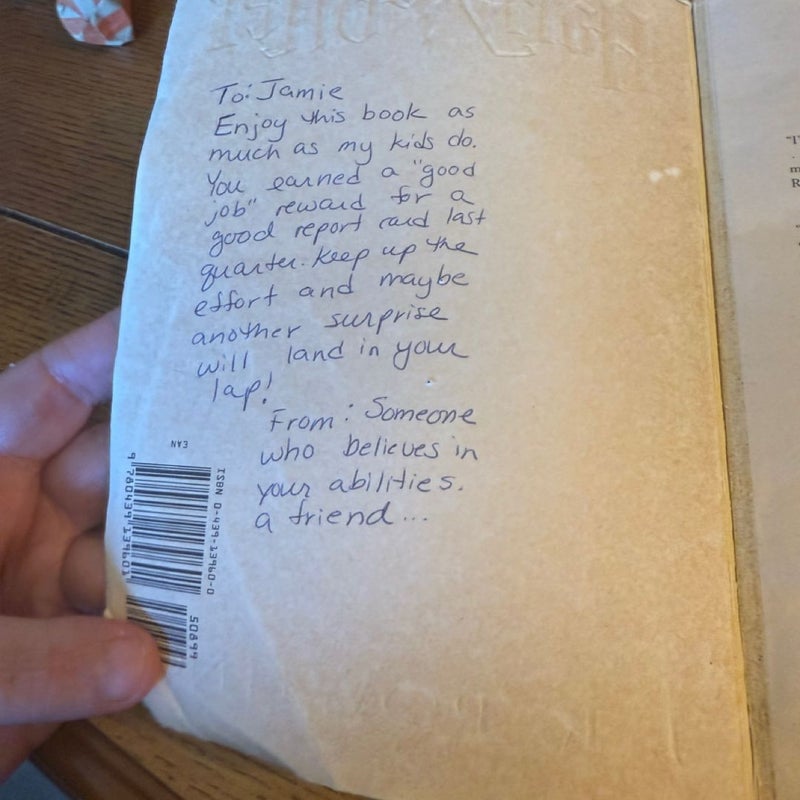 Harry Potter
To: Jamie
Enjoy this book as
much as my kids do.
You earned a "good
job" reward for a
good report card last
quarter. Keep up the
effort and maybe
another surprise
will land in your
lap!
From: Someone
who believes in
your abilities.
a friend...
EAN
ISBN 0-439-13960-0
9 780439 139601
50899